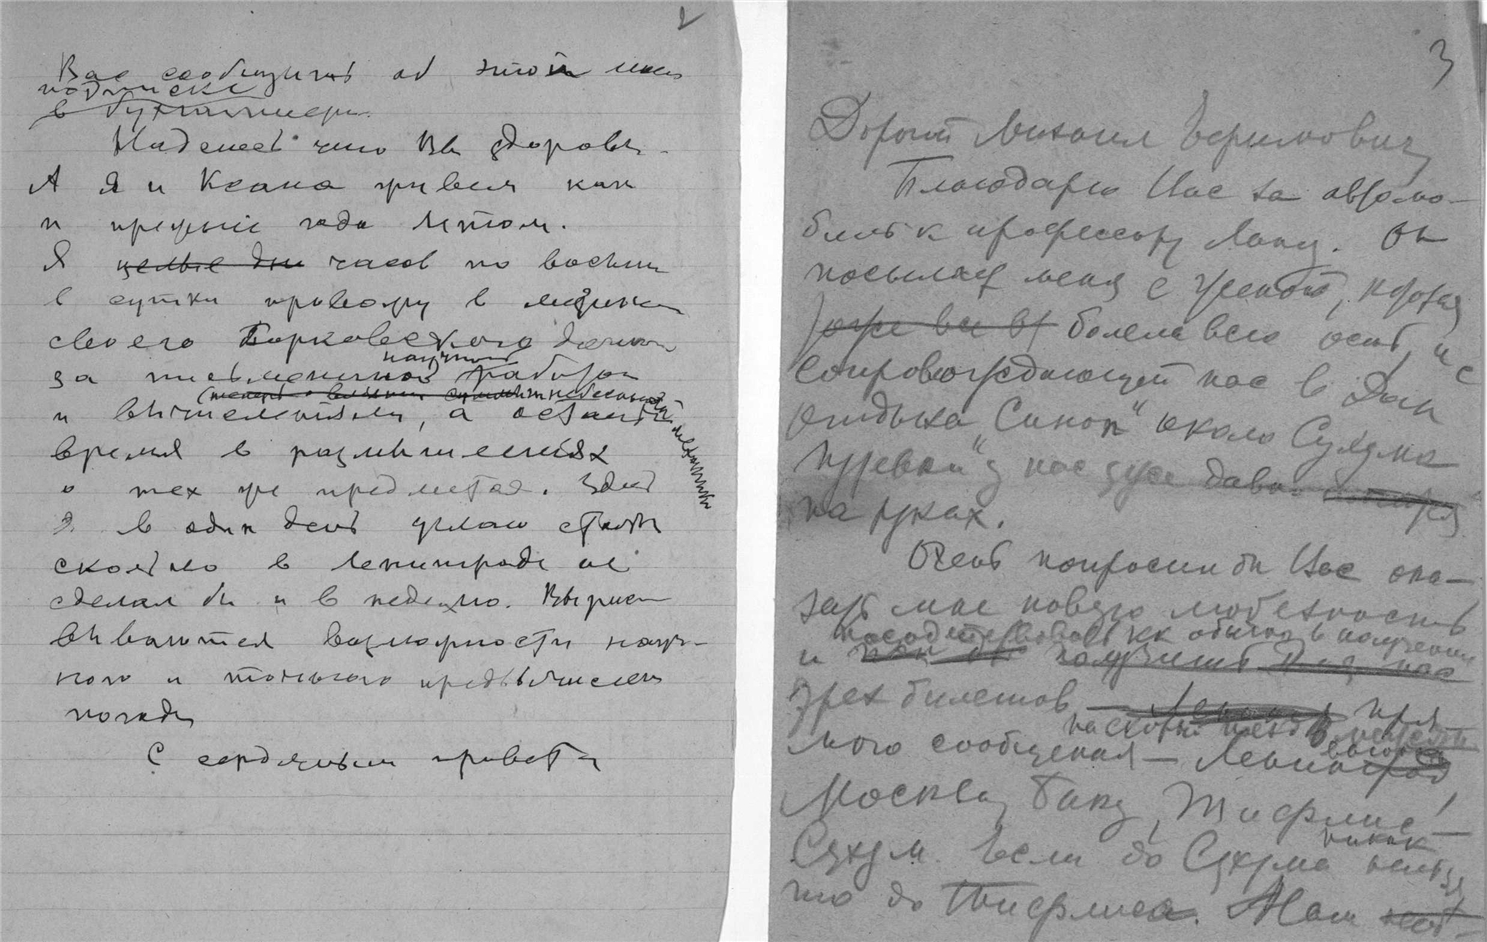 2
Вас сообщить об этой мне
подписке
в бухгалтерии.
Надеюсь что Вы здоровы.
А я и Ксана живем как
и прежние года летом.
Я целые дни часов по восьми
в сутки провожу в мезонине
своего Борковского домика
за письменной научной работой
и вычислениями, а остальное
время в размышлениях
о тех же предметах. Здесь
я в один день делаю столько
сколько в Ленинграде не
сделал бы и в неделю. Вырисо
вываются возможности науч-
ного и точного предвычисления
погоды
С сердечным приветом
3
Дорогой Михаил Ефимович,
Благодарю Вас за автомо-
биль к профессору Лангу. Он
посылает меня с Ксеной, которая
тоже болела всю осень, и с
сопровождающей нас в Дом
отдыха "Синоп" около Сухума
Путевки у нас уже давно
на руках.
Очень попросил бы Вас ока-
зать мне новую любезность
посодействовать как обычно в получении
и получить
трех билетов
пря
на скорый поезд в мягком
вагоне
мого сообщения — Ленинград,
Москва, Баку, Тифлис —
Сухум. Если до Сухума никак нельзя
то до Тифлиса. Нам